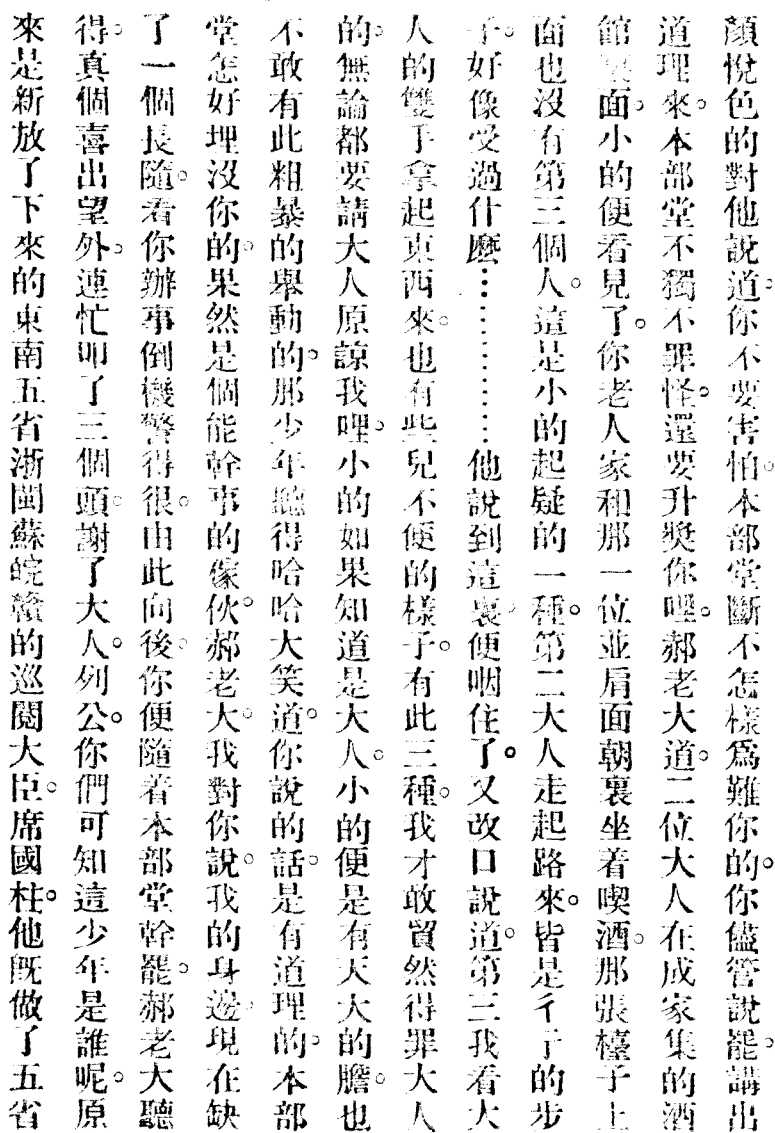 顏悅色的對他說道。你不要害怕。本部堂斷不怎樣爲難你的。你儘管說罷。講出
道理來。本部堂不獨不罪怪。還要升奬你哩。郝老大道。二位大人在成家集的酒
館裏面。小的便看見了。你老人家和那一位並肩面朝裏坐着喫酒。那張檯子上
面也沒有第三個人。這是小的起疑的一種。第二大人走起路來。皆是彳亍的步
子。好像受過什麼…………他說到這裏。便咽住了。又改口說道。第三我看大
人的雙手拿起東西來。也有些兒不便的樣子。有此三種。我才敢貿然得罪大人
的。無論都要請大人原諒我哩。小的如果知道是大人。小的便是有天大的膽。也
不敢有此粗暴的舉動的。那少年聽得哈哈大笑道。你說的話。是有道理的。本部
堂怎好埋沒你的。果然是個能幹事的傢伙。郝老大。我對你說。我的身邊。現在缺
了一個長隨。看你辦事倒機警得很。由此向後。你便隨着本部堂幹罷。郝老大聽
得。真個喜出望外。連忙叩了三個頭。謝了大人。列公。你們可知這少年是誰呢。原
來是新放了下來的東南五省浙閩蘇皖贛的巡閱大臣。席國柱。他既做了五省